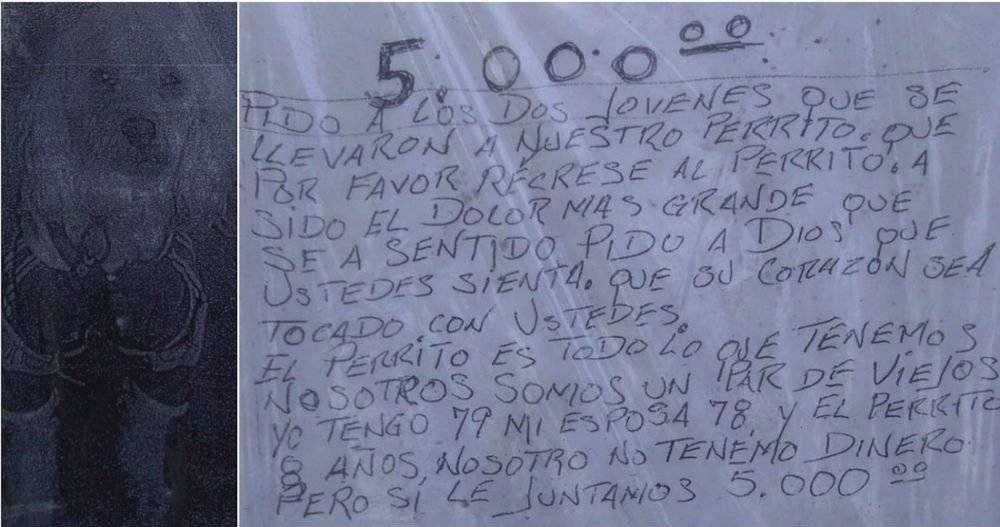 5.000.00
PIDO A LOS DOS JOVENES QUE SE
LLEVARON A NUESTRO PERRITO. QUE
POR FAVOR REGRESE AL PERRITO. A
SIDO EL DOLOR MAS GRANDE QUE
SE A SENTIDO PIDO A DIOS QUE
USTEDES SIENTA. QUE SU CORAZON SEA
TOCADO CON USTEDES.
EL PERRITO ES TODO LO QUE TENEMOS
NOSOTROS SOMOS UN PAR DE VIEJOS
YO TENGO 79 MI ESPOSA 78. Y EL PERRITO
8 AÑOS. NOSOTRO NO TENEMO DINERO
PERO SI LE JUNTAMOS 5.000 00